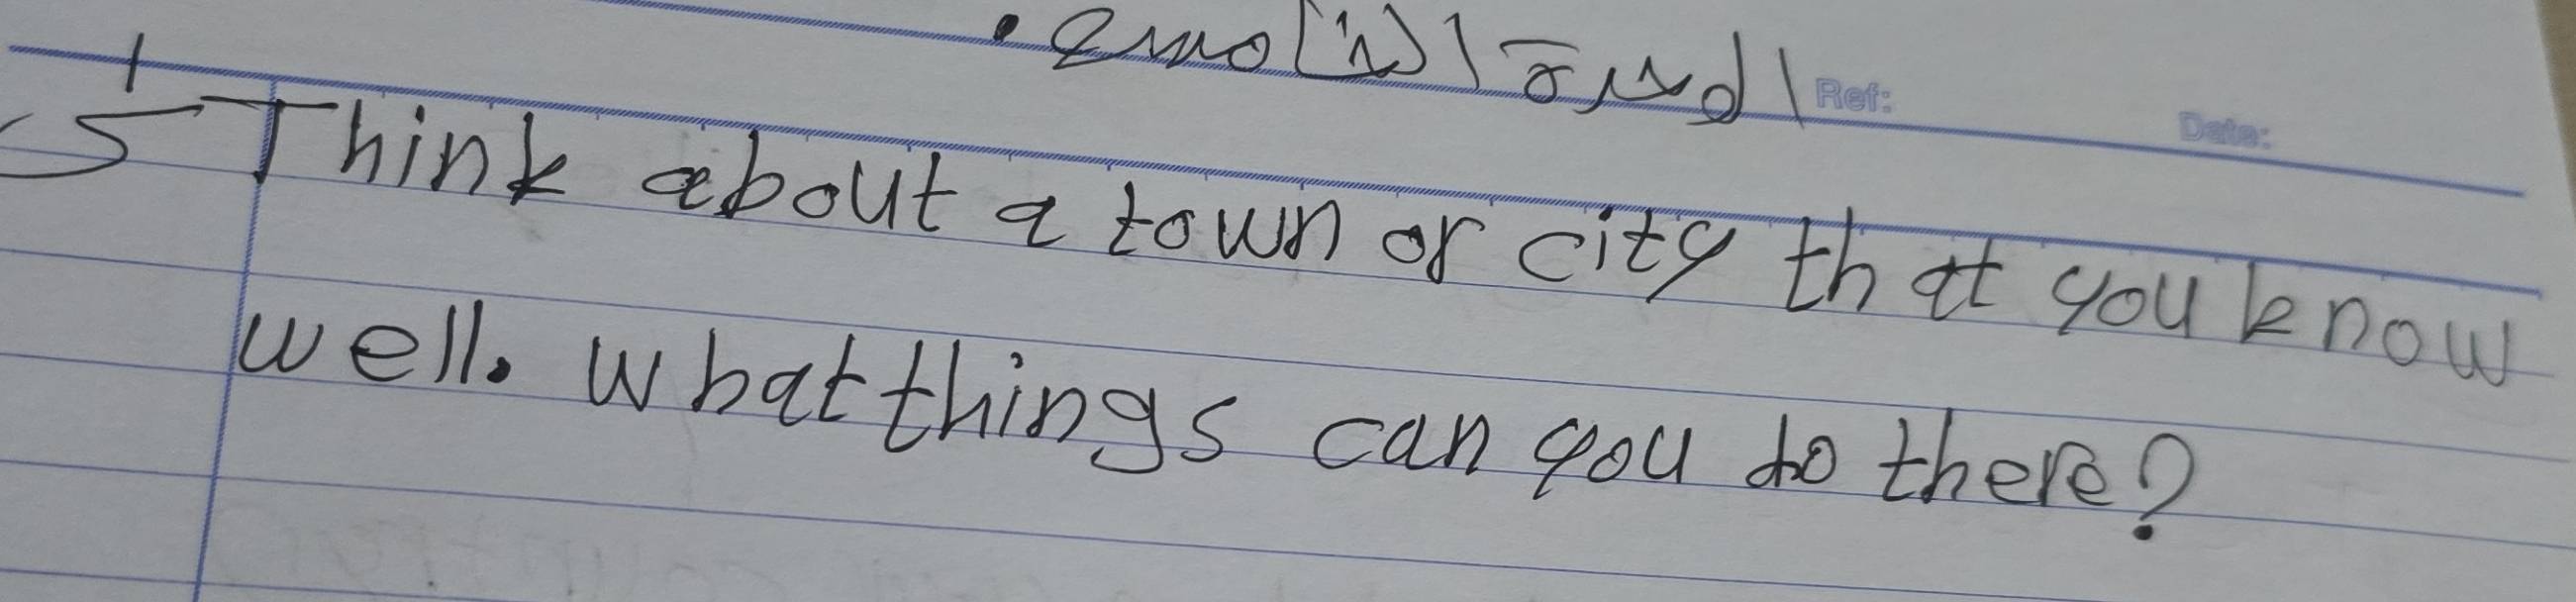 الفقرة الخامسة.
س١ Think about a town or city that you know
well. What things can you do there?
Ref:
Date: